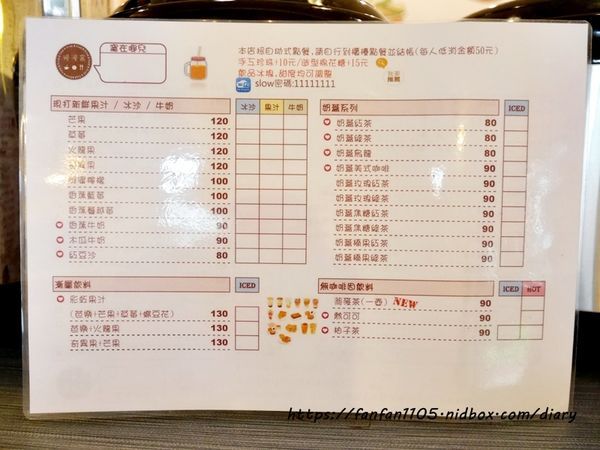 窩在哪兒
本店採自助式點餐,請自行到櫃檯點餐並結帳(每人低消金額50元)
手工珍珠+10元/造型棉花糖+15元
飲品冰塊,甜度均可調整
slow密碼:11111111
店家推薦
現打新鮮果汁 / 冰沙 / 牛奶 冰沙 果汁 牛奶
芒果 120
草莓 120
火龍果 120
奇異果 120
100
100
100
90
木瓜牛奶 90
紅豆沙 80
漸層飲料 ICED
彩虹果汁
130
130
奇異果+芒果 130
奶蓋系列 ICED
奶蓋紅茶 80
奶蓋綠茶 80
奶蓋烏龍 80
奶蓋美式咖啡 90
奶蓋玫瑰紅茶 90
奶蓋玫瑰綠茶 90
奶蓋焦糖紅茶 90
奶蓋焦糖綠茶 90
奶蓋榛果紅茶 90
奶蓋榛果綠茶 90
無咖啡因飲料 ICED HOT
(一壺) NEW 90
熱可可 90
柚子茶 90
https://fanfan1105.nidbox.com/diary